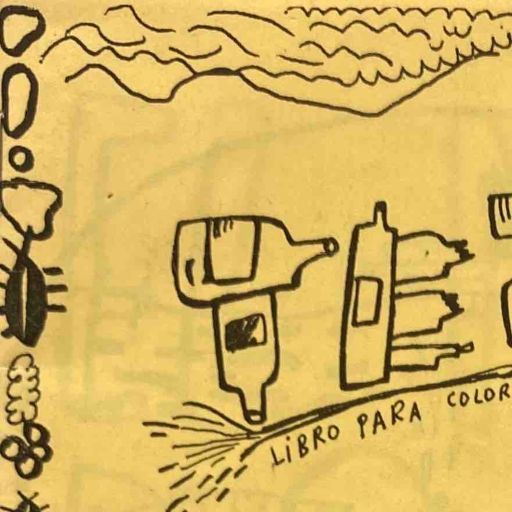 LiBRO PARA COLOR